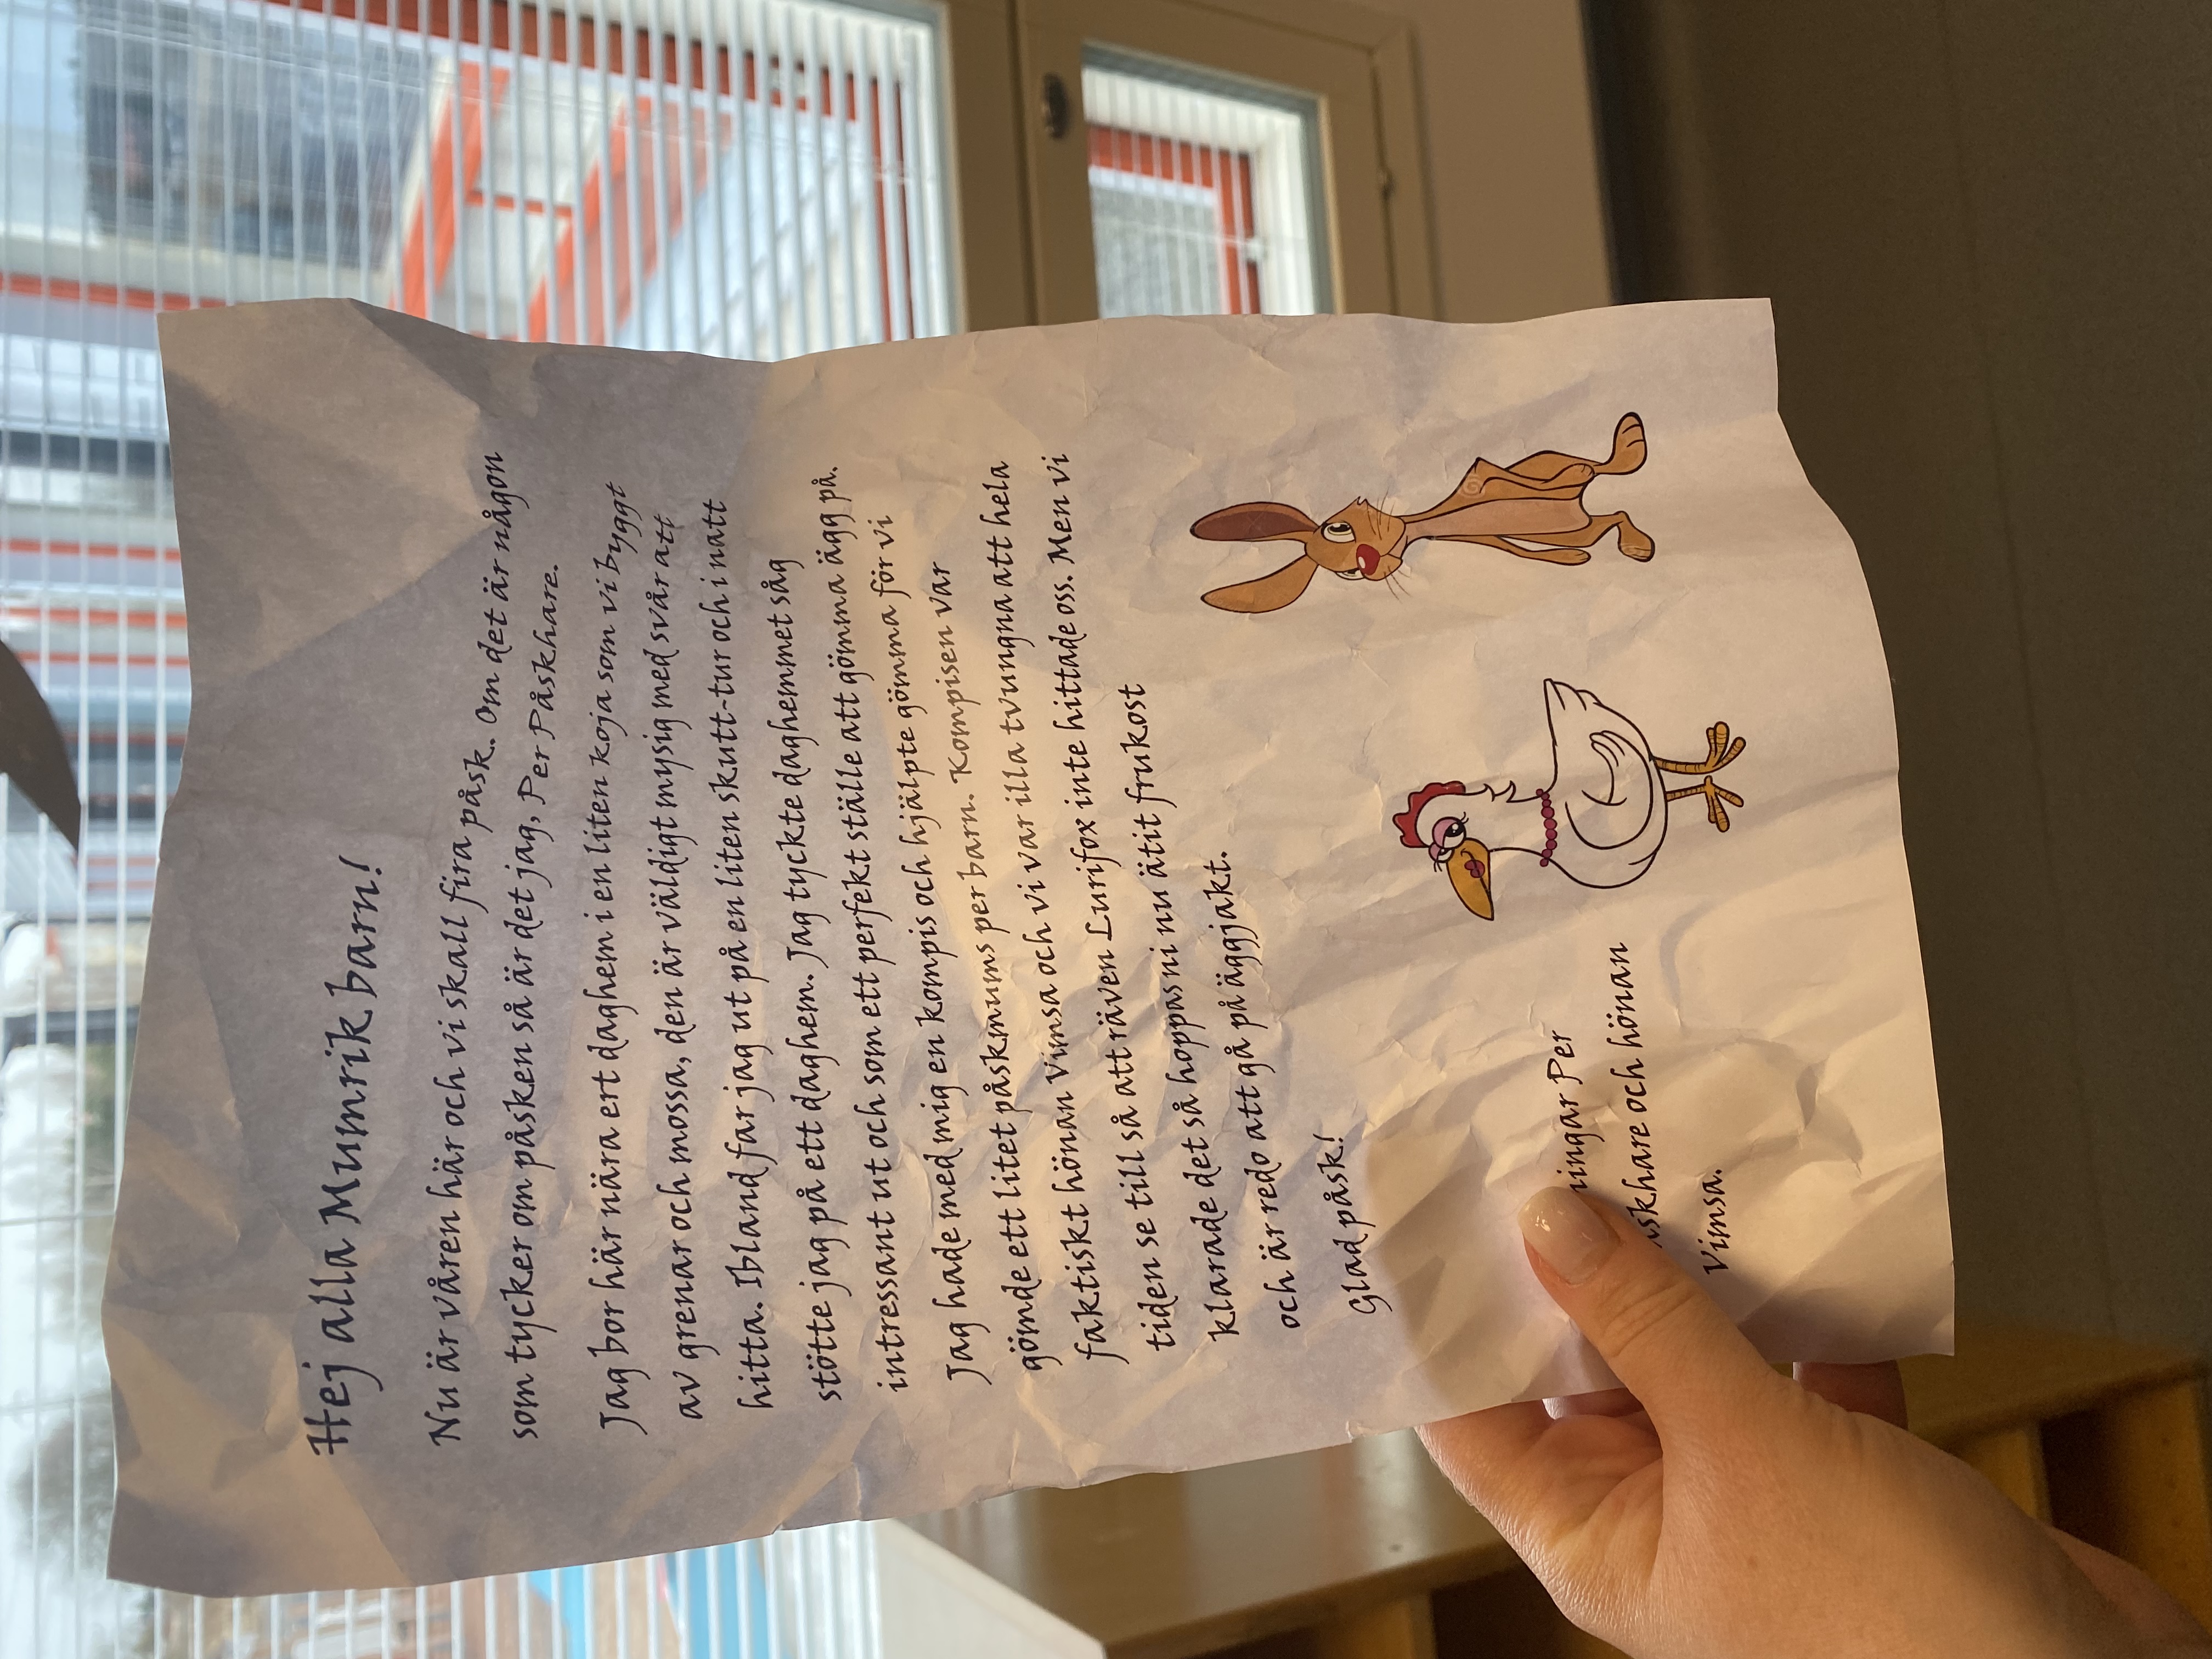 Hej alla Mumrik barn!
Nu är våren här och vi skall fira påsk. Om det är någon
som tycker om påsken så är det jag, Per Påskhare.
Jag bor här nära ert daghem i en liten koja som vi byggt
av grenar och mossa, den är väldigt mysig med svår att
hitta. Ibland far jag ut på en liten skutt-tur och i natt
stötte jag på ett daghem. Jag tyckte daghemmet såg
intressant ut och som ett perfekt ställe att gömma ägg på.
Jag hade med mig en kompis och hjälpte gömma för vi
gömde ett litet påskmums per barn. Kompisen var
faktiskt hönan Vimsa och vi var illa tvungna att hela
tiden se till så att räven Lurifox inte hittade oss. Men vi
klarade det så hoppas ni nu ätit frukost
och är redo att gå på äggjakt.
Glad påsk!
ingar Per
skhare och hönan
Vimsa.